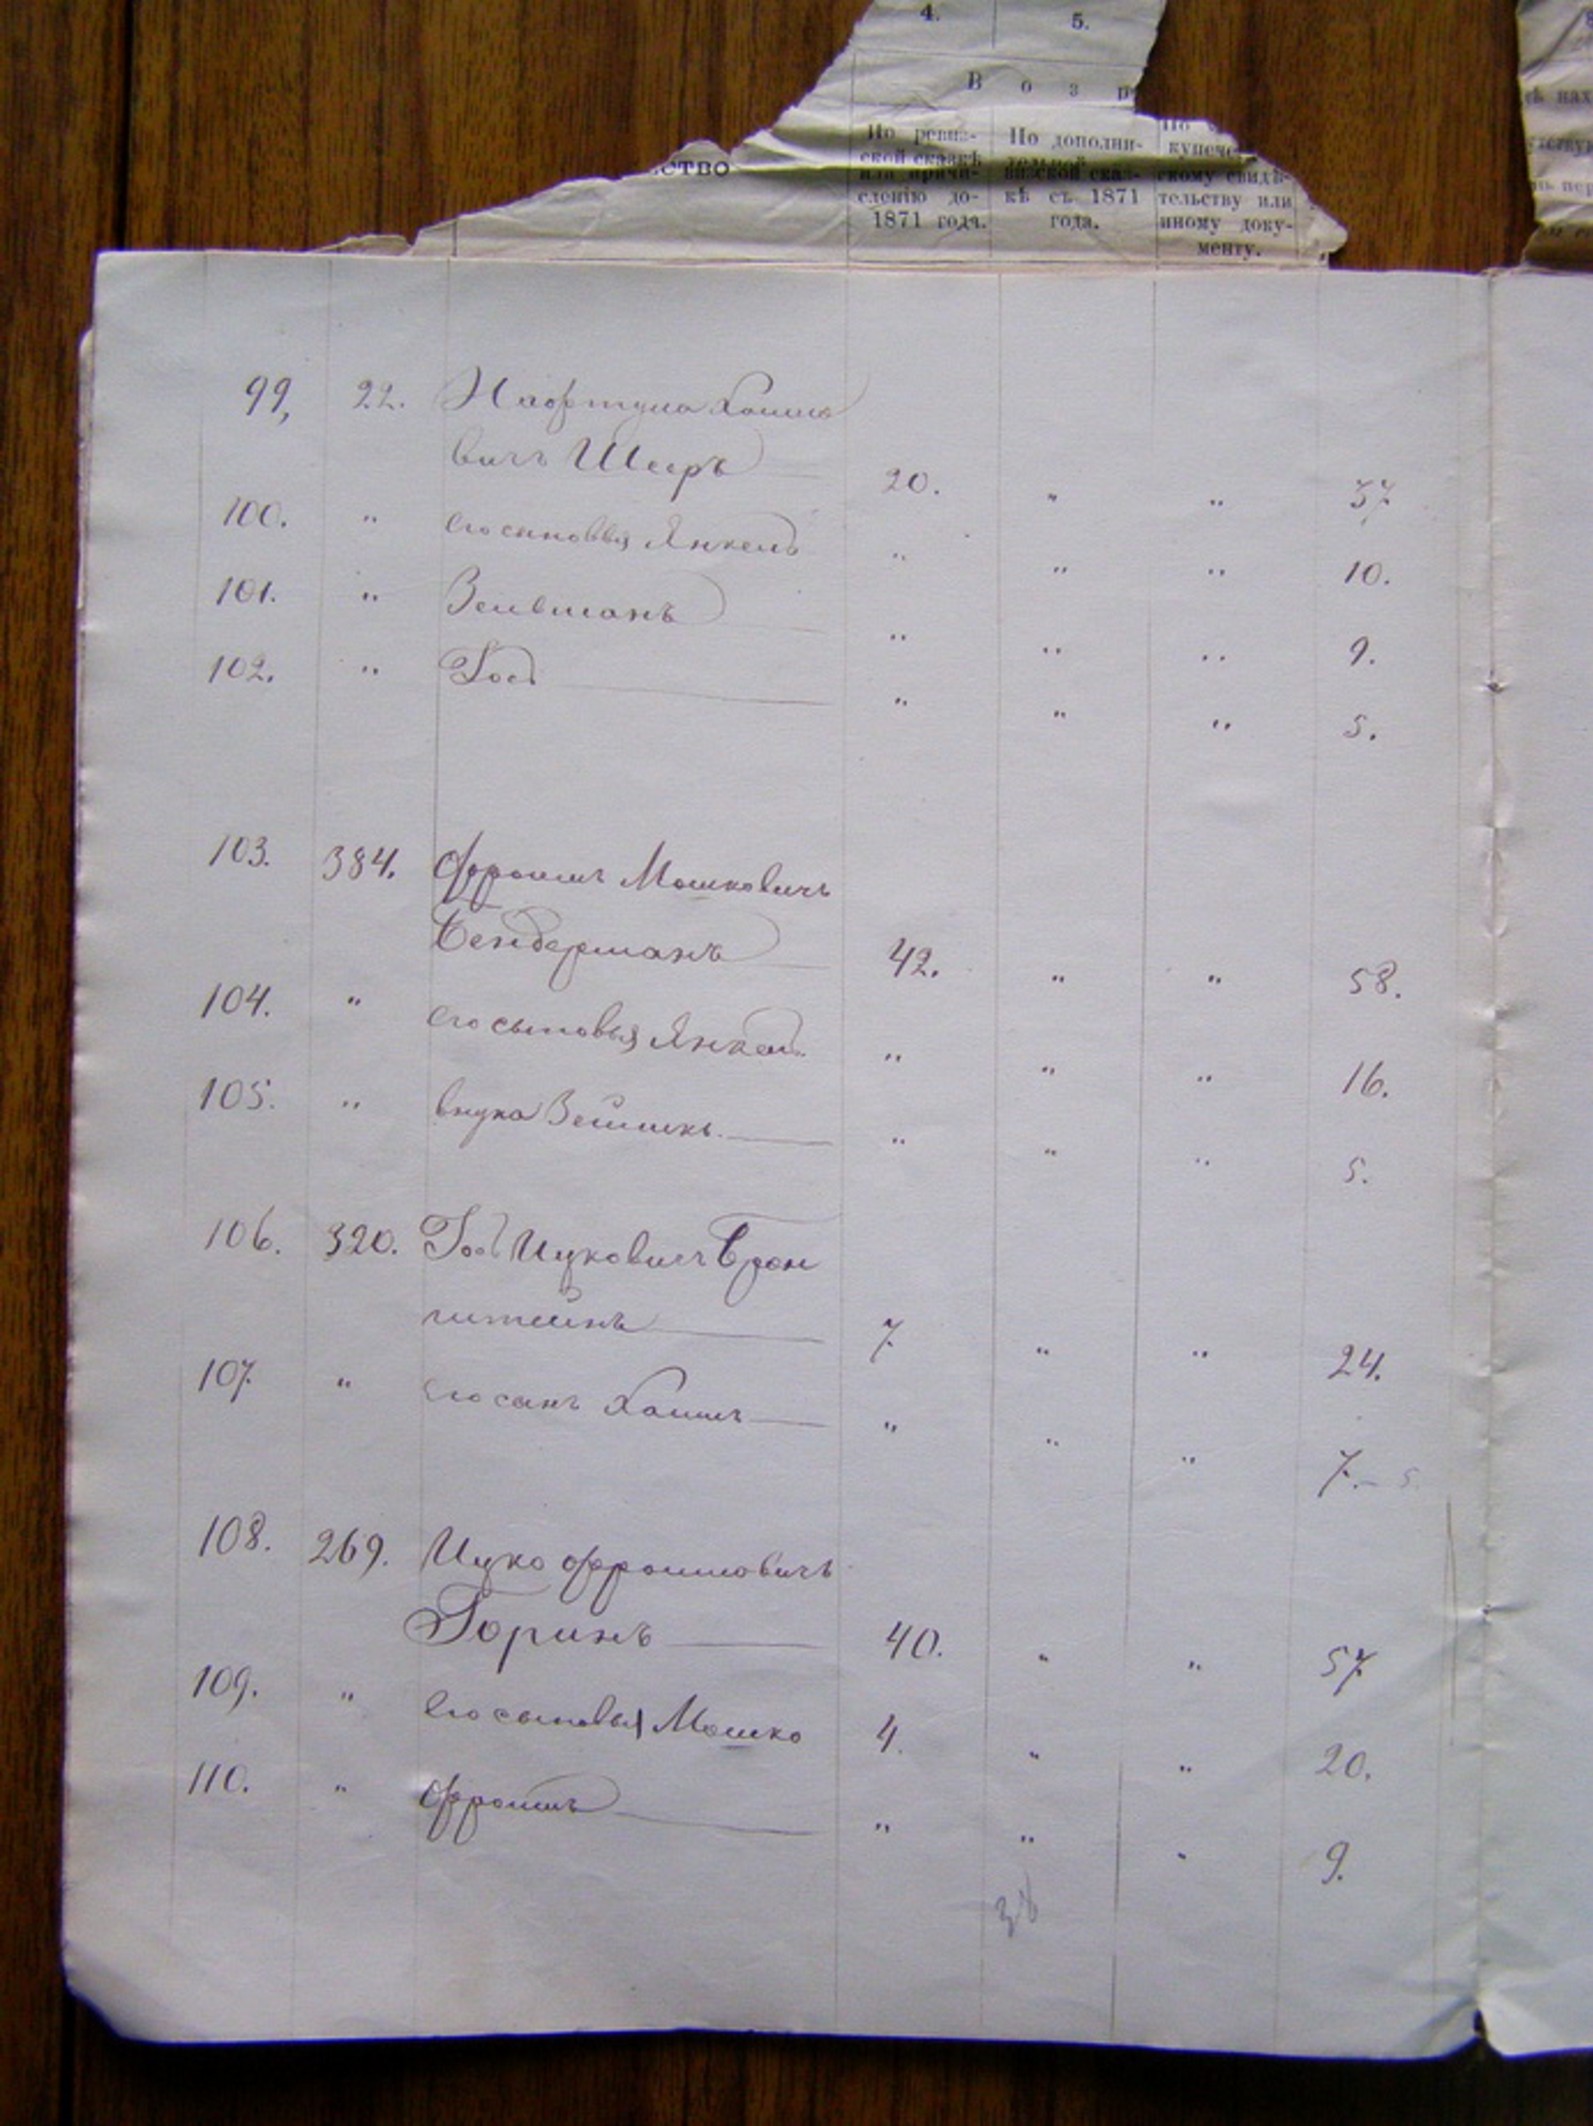 4. 5.
В о з р
ство
По ревиз- ской сказкѣ или причи- сленію до- 1871 года.
По дополни- тельной визской сказ- кѣ съ 1871 года.
купече- скому свидѣ- тельству или иному доку- менту.
99, 22. Нафтула Хаимо
вичъ Шееръ 20. " " 37
100. " его сыновья Янкель " " " 10.
101. " Зельманъ " " " 9.
102. " Іось " " " 5.
103. 384. Фроимъ Мошковичъ
Бендерманъ 42. " " 58.
104. " его сыновья Янкель " " " 16.
105. " внука " " " 5.
106. 320. Іось Ицковичъ Брон
штейнъ 7 " " 24.
107. " его сынъ Хаимъ " " " 7. – 5.
108. 269. Ицко Фроимовичъ
Горинъ 40. " " 57
109. " его сыновья Мошко 4. " " 20.
110. " Фроимъ " " " 9.
38